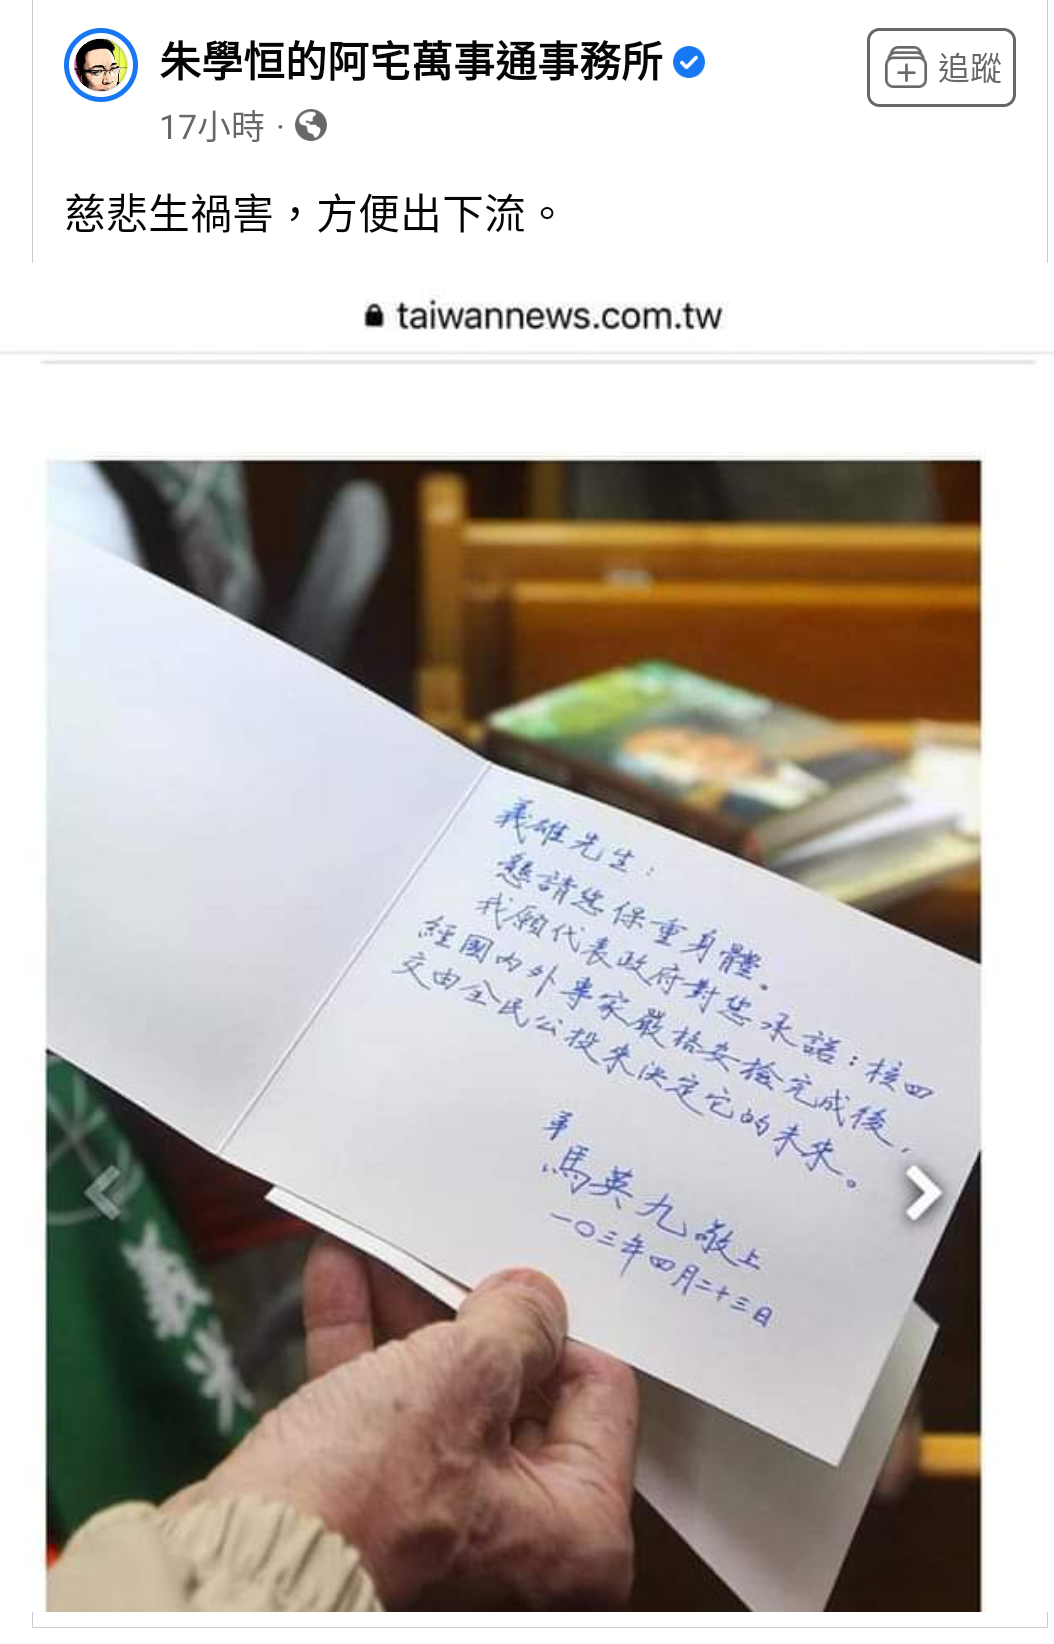 朱學恒的阿宅萬事通事務所
追蹤
17小時 ·
慈悲生禍害，方便出下流。
taiwannews.com.tw
義雄先生：
懇請您保重身體。
我願代表政府對您承諾：核四
經國內外專家嚴格安檢完成後，
交由全民公投來決定它的未來。
弟
馬英九敬上
一〇三年四月二十三日